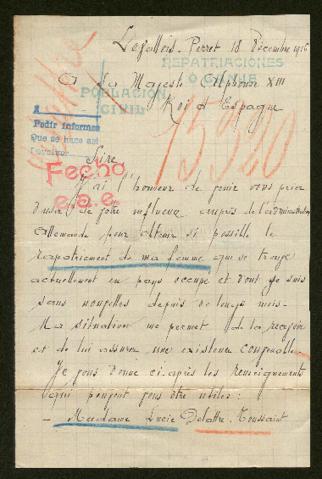 Levallois-Perret 18 Décembre 1916
REPATRIACIONES
A Sa Majesté Alphonse XIII
POBLACION
CIVIL
Roi d'Espagne
A
Pedir informes
Que se hace así
15320
Sire
Fecho
e.g.e.
J'ai l'honneur de venir vous prier
d'user de votre influence auprès de l'administration
allemande pour obtenir si possible le
rapatriement de ma femme qui se trouve
actuellement en pays occupé et dont je suis
sans nouvelles depuis de longs mois.
Ma situation me permet de la recevoir
et de lui assurer une existence convenable.
Je vous donne ci-après les renseignements
qui peuvent vous être utiles:
- Madame Lucie Delattre-Toussaint